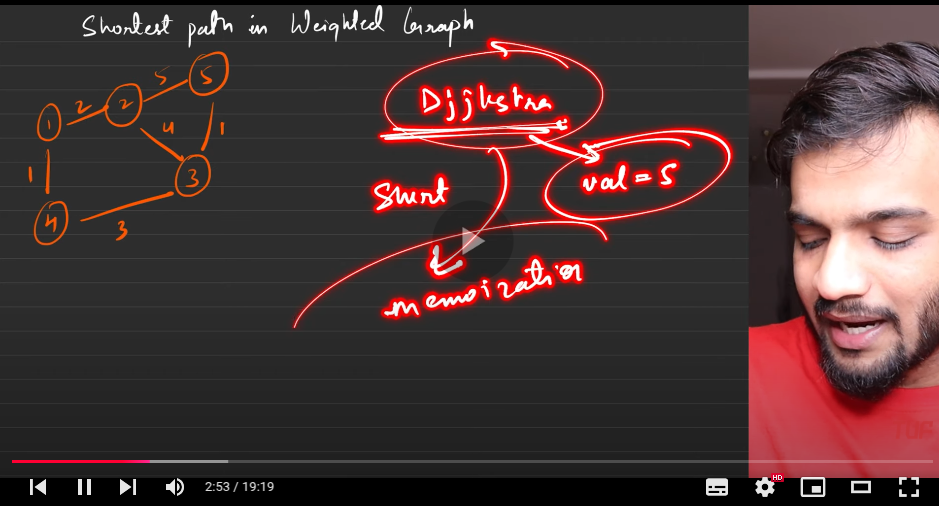 Shortest path in Weighted Graph
5
5
2
2
1
4
1
1
3
4
3
Djjkstra
val = 5
Shirt
memoization
2:53 / 19:19
HD